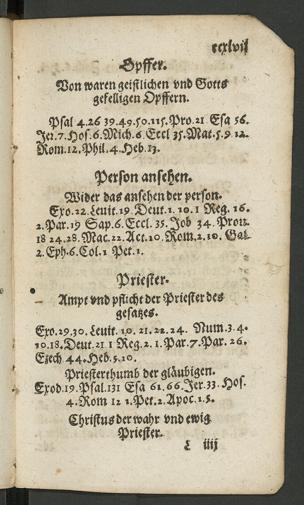 ccxlvij
Opffer.
Von waren geistlichen vnd Gotts
gefelligen Opffern.
Psal 4.26 39.49.50.115.Pro.21 Esa 56.
Jer.7.Hos.6.Mich.6.Eccl 35.Mat.5.9 12.
Rom.12.Phil.4.Heb.13.
Person ansehen.
Wider das ansehen der person.
Exo.22.Leuit.19.Deut.1.10.1 Reg.16.
2.Par.19 Sap.6.Eccl.35.Job 34.Prou.
18 24.28.Mac.22.Act.10.Rom.2.10.Gal.
2.Eph.6.Col.1 Pet.1.
Priester.
Ampt vnd pflicht der Priester des
gesatzes.
Exo.29.30.Leuit.10.21.22.24. Num.3.4.
10.18.Deut.21 1 Reg.2.1.Par.7.Par.26.
Ezech 44.Heb.5.10.
Priesterthumb der gläubigen.
Exod.19.Psal.131 Esa 61.66.Jer.33.Hos.
4.Rom 12 1.Pet.2.Apoc.1.5.
Christus der wahr vnd ewig
Priester.
iiij